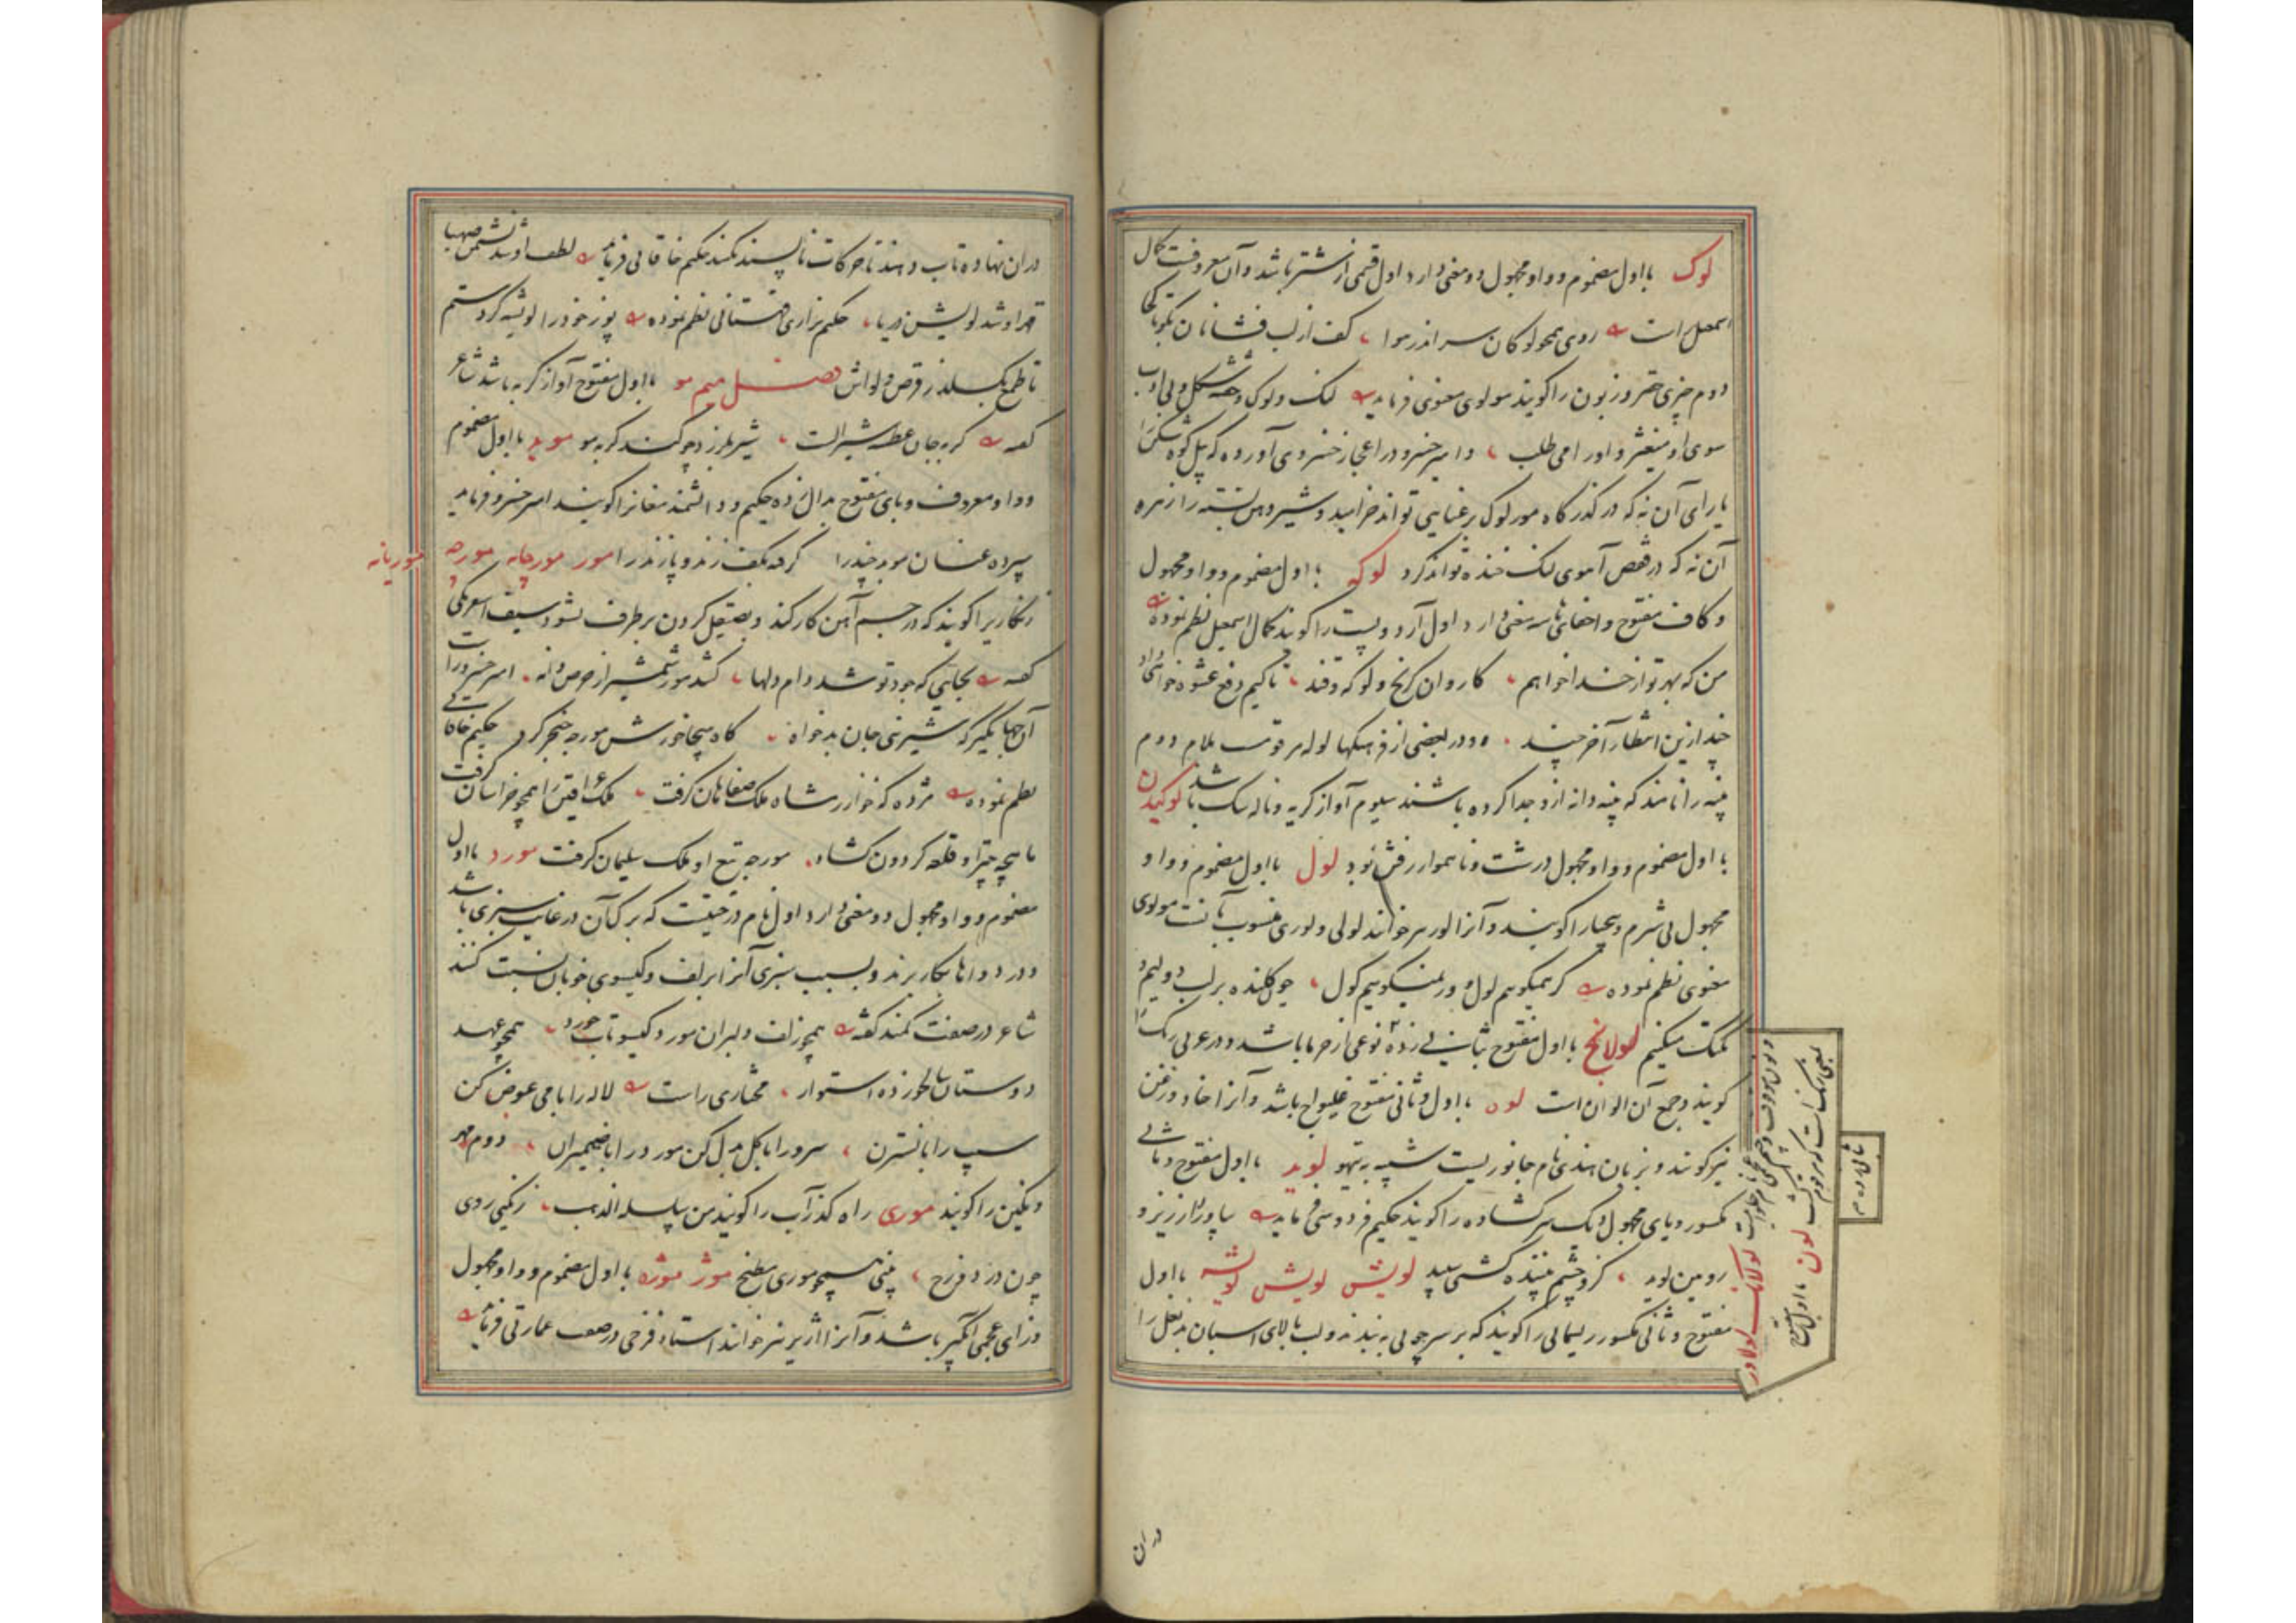 لوک بااول مضموم و واو مجهول دو معنی دارد اول قسمی از شتر باشد و آن معروفست کمال
اسمعیل راست روی همچو لوکان سر اندر هوا کف از لب فشانان
دوم چیزی حقیر و زبون را گویند مولوی معنوی فرماید لنگ و لوک و خفته شکل و بی ادب
سوی او میغیژ و اورا می طلب و امیر خسرو در اعجاز خسروی آورده که پیل کوه شکن را
یارای آن نه که در گذرگاه مور لوک برعنایی تواند خرامید و شیر دهن بسته را زهره
آن نه که در رقص آهوی لنگ خنده تواند کرد لوکه بااول مضموم و واو مجهول
و کاف مفتوح و اخفای ها سه معنی دارد اول آرد و پست را گویند کمال اسمعیل نظم نموده
من که بهر تو از خدا خواهم کاروان کرنج و لوکه و قند تا کیم دفع عشوه خواهی داد
چند ازین انتظار آخر چند و در بعضی از فرهنگها لوله مرقومست بلام دوم
پنبه را نامند که پنبه دانه ازو جدا کرده باشند سیوم آواز گریه و ناله سگ باشد لوکیدن
بااول مضموم و واو مجهول درشت و ناهموار رفتن بود لول بااول مضموم و واو
مجهول بی شرم و بیحیا را گویند و آنرا لور نیز خوانند لولی و لوری منسوب بآنست مولوی
معنوی نظم نموده گر همیگویم لول ور نمیگویم گول چون کلنده بر لب دولیم
لکلک میکنیم لولانج بااول مفتوح بثانی زده نوعی از خرما باشد و در عربی رنگ را
گویند و جمع آن الوان است لوه بااول و ثانی مفتوح غلیواج باشد و آنرا خاد و زغن
نیز گویند و بزبان هندی نام جانوریست شبیه به تیهو لوید بااول مفتوح و ثانی
مکسور و یای مجهول دیگ سر گشاده را گویند حکیم فردوسی فرماید بیاورد ارزیز و
رویین لوید کزو چشم بیننده گشتی سپید لویش لویش لویشه بااول
مفتوح و ثانی مکسور ریسمانی را گویند که بر سر چوبی به بندند و لب بالای اسبان بدنعل را
دران
دران نهاده تاب دهند تا حرکات ناپسند نکند حکیم خاقانی فرماید لطف او شد نشمن صهبا
قهر او شد لویش دریا حکیم نزاری قهستانی نظم نموده پوز خود را لویشه کردستم
تا طمع بگسلد ز قرص و لواش فصل میم مو بااول مفتوح آواز گربه باشد شاعر
گفته گربه جان عطسه شیرالت شیر بلرزد چو کند گربه مو موبد بااول مضموم
و واو معروف و بای مفتوح بدال زده حکیم و دانشمند مغانرا گویند امیر خسرو فرماید
سپرده عنان موبد چند را گرفته بکف زند و پازند را مور مورچانه مورچه موریانه
زنگاریرا گویند که در جسم آهن کار کند و بصیقل کردن برطرف نشود سیف اسفرنگی
گفته بجایی که جود تو شد دام دلها کشد مور شمشیر از حرص دانه امیر خسرو راست
آن جهانگیر که شیرینی جان بدخواه گاه هیجا خورش مورچه خنجر کرد حکیم خاقانی
نظم نموده مژده که خوارزمشاه ملک صفاهان گرفت ملک عراقین را همچو خراسان گرفت
ماهچه چتر او قلعه گردون گشاد مورچه تیغ او ملک سلیمان گرفت مورد بااول
مضموم و واو مجهول دو معنی دارد اول نام درختیست که برگ آن در غایت سبزی باشد
و در دواها بکار برند و بسبب سبزی آنرا بزلف و گیسوی خوبان نسبت کنند
شاعر در صفت کمند گفته همچو زلف دلبران مورد گیسو تاب خورد همچو عهد
دوستان سالخورده استوار مختاری راست لاله را با می عوض کن
سیب را با نسترن سرو را با گل بدل کن مورد را با ضمیران دوم مهر
و نگین را گویند موری راه گذر آب را گویند من سلسلة الذهب زنگیی روی
چون در دوزخ بینی همچو موری مطبخ موژ موژه بااول مضموم و واو مجهول
و زای عجمی آبگیر باشد و آنرا آژیر نیز خوانند استاد فرخی در صفت عمارتی فرماید